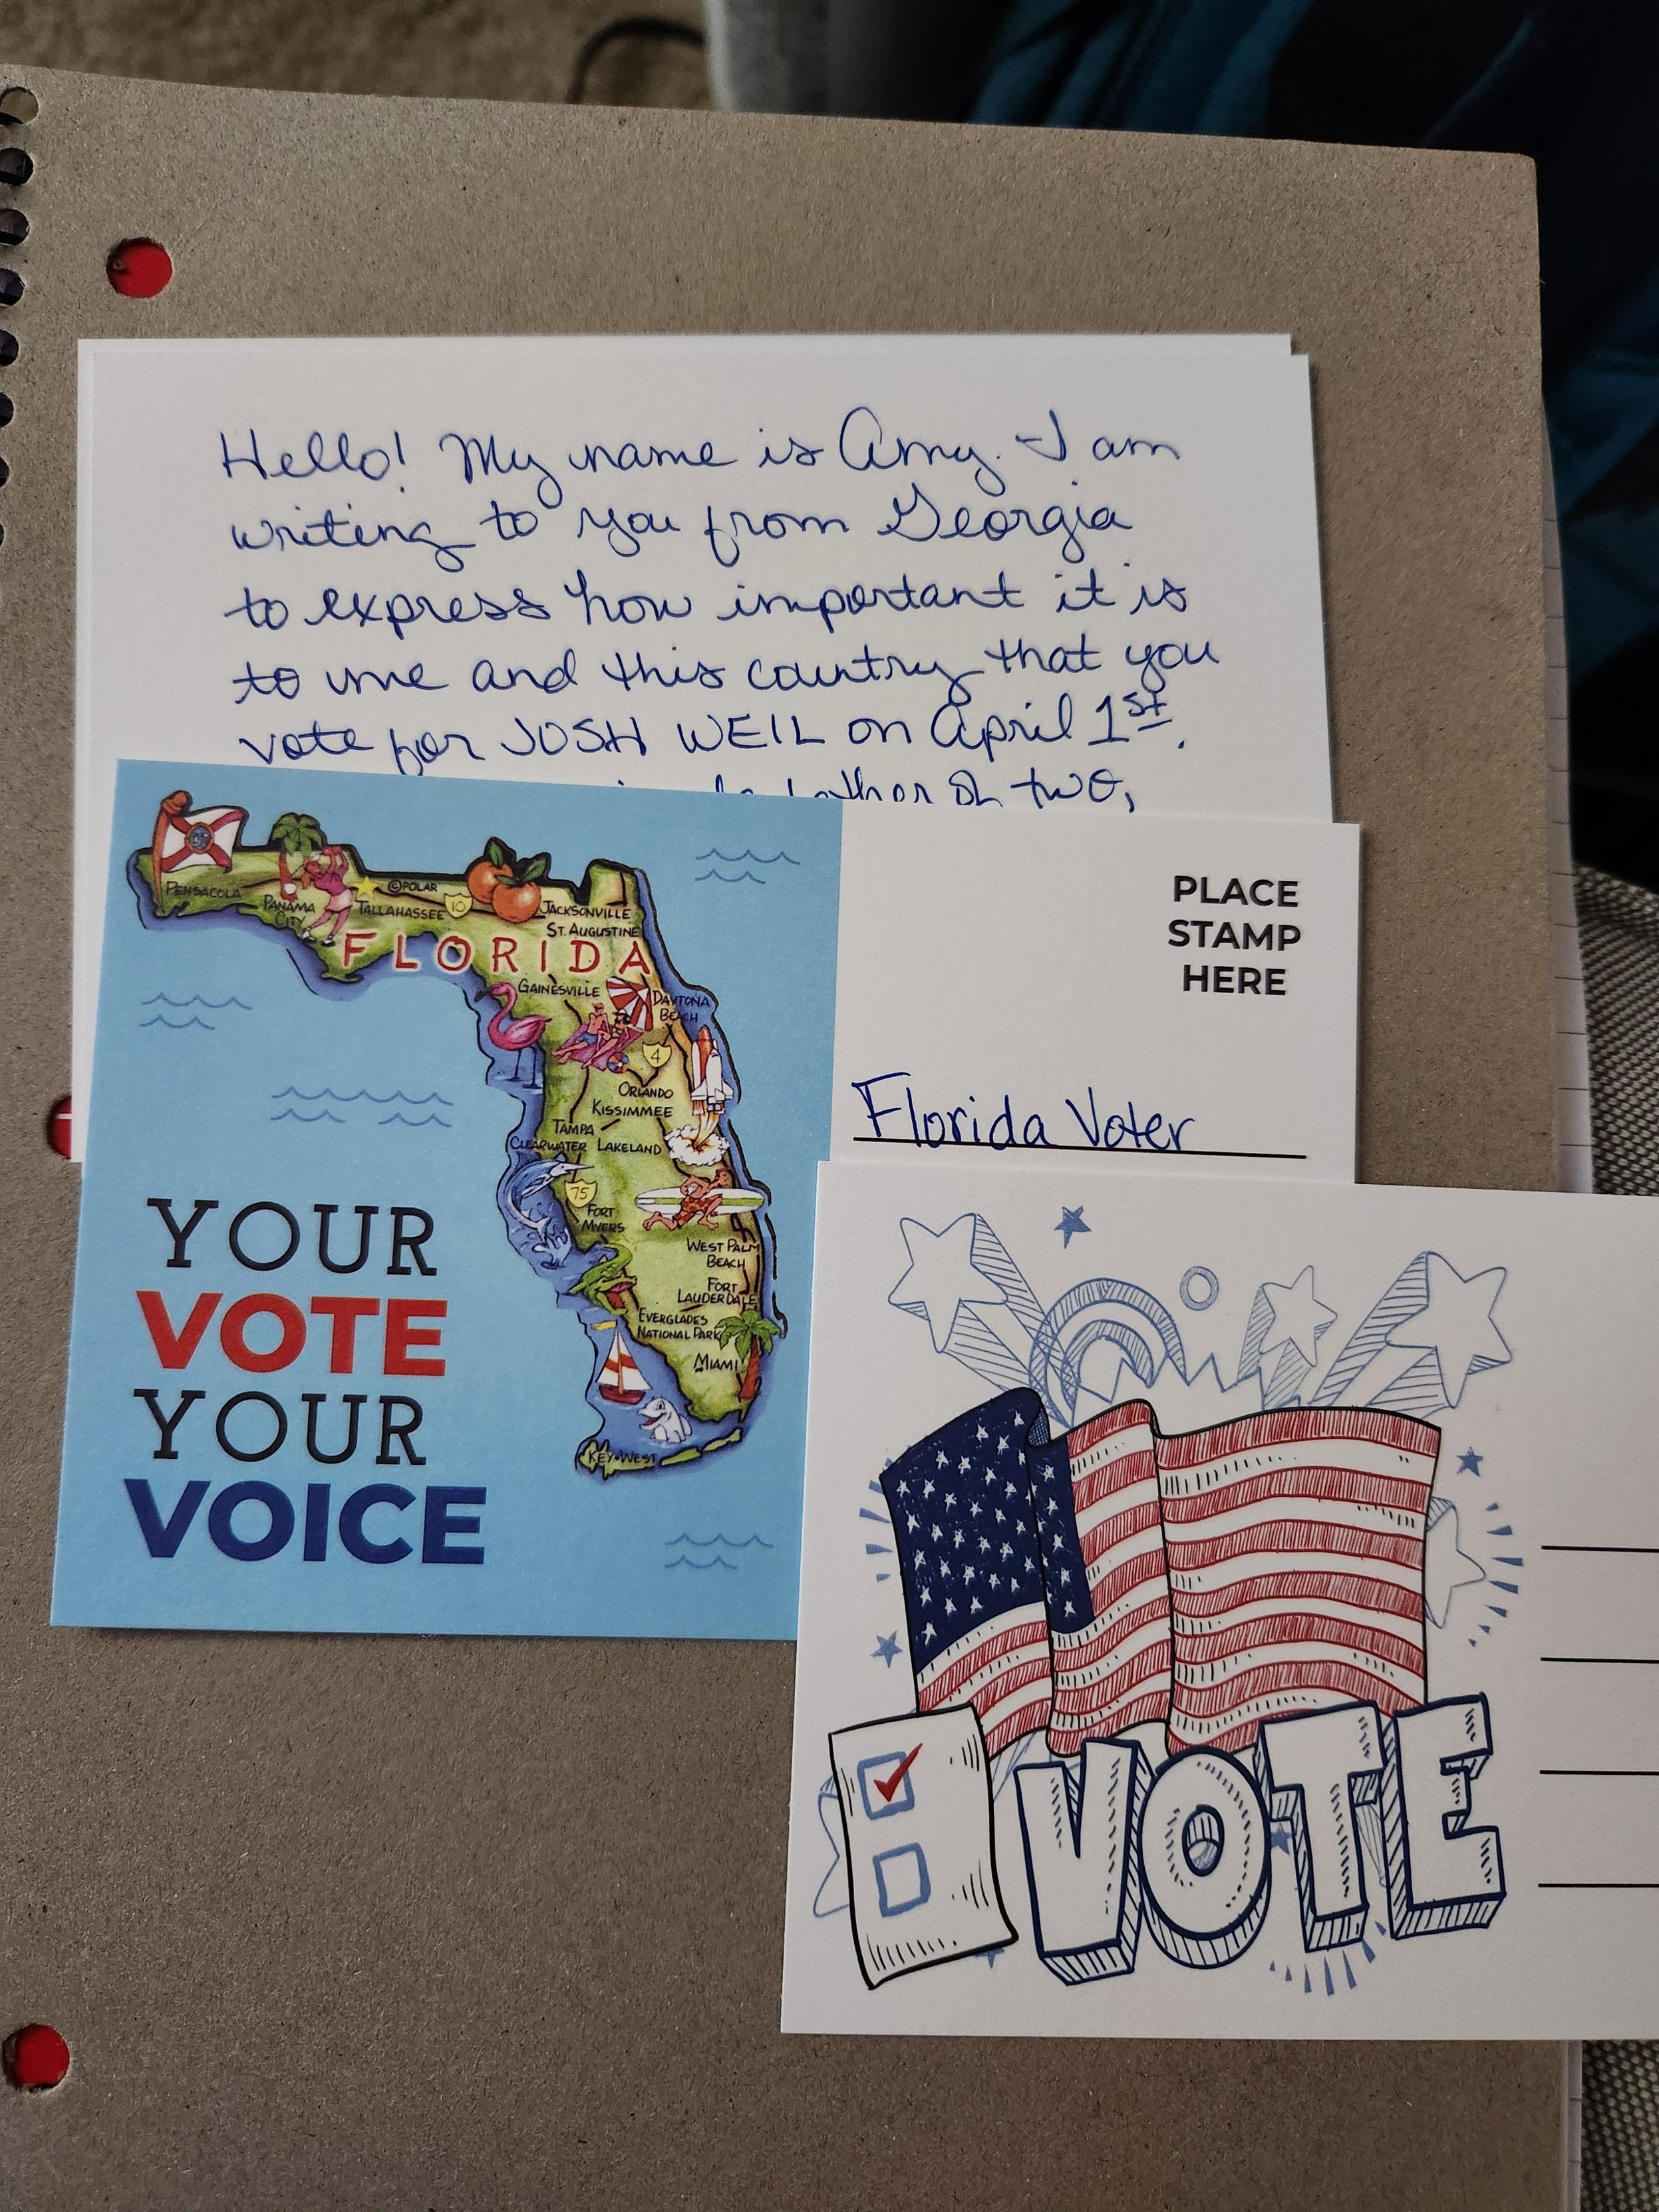 Hello! My name is Amy. I am
writing to you from Georgia
to express how important it is
to me and this country that you
vote for JOSH WEIL on April 1st.
father of two,
PENSACOLA
PANAMA
CITY
TALLAHASSEE
©POLAR
10
JACKSONVILLE
ST. AUGUSTINE
FLORIDA
GAINESVILLE
DAYTONA
BEACH
4
ORLANDO
KISSIMMEE
TAMPA
CLEARWATER LAKELAND
75
FORT
MYERS
WEST PALM
BEACH
FORT
LAUDERDALE
EVERGLADES
NATIONAL PARK
MIAMI
KEY WEST
YOUR
VOTE
YOUR
VOICE
PLACE
STAMP
HERE
Florida Voter
VOTE